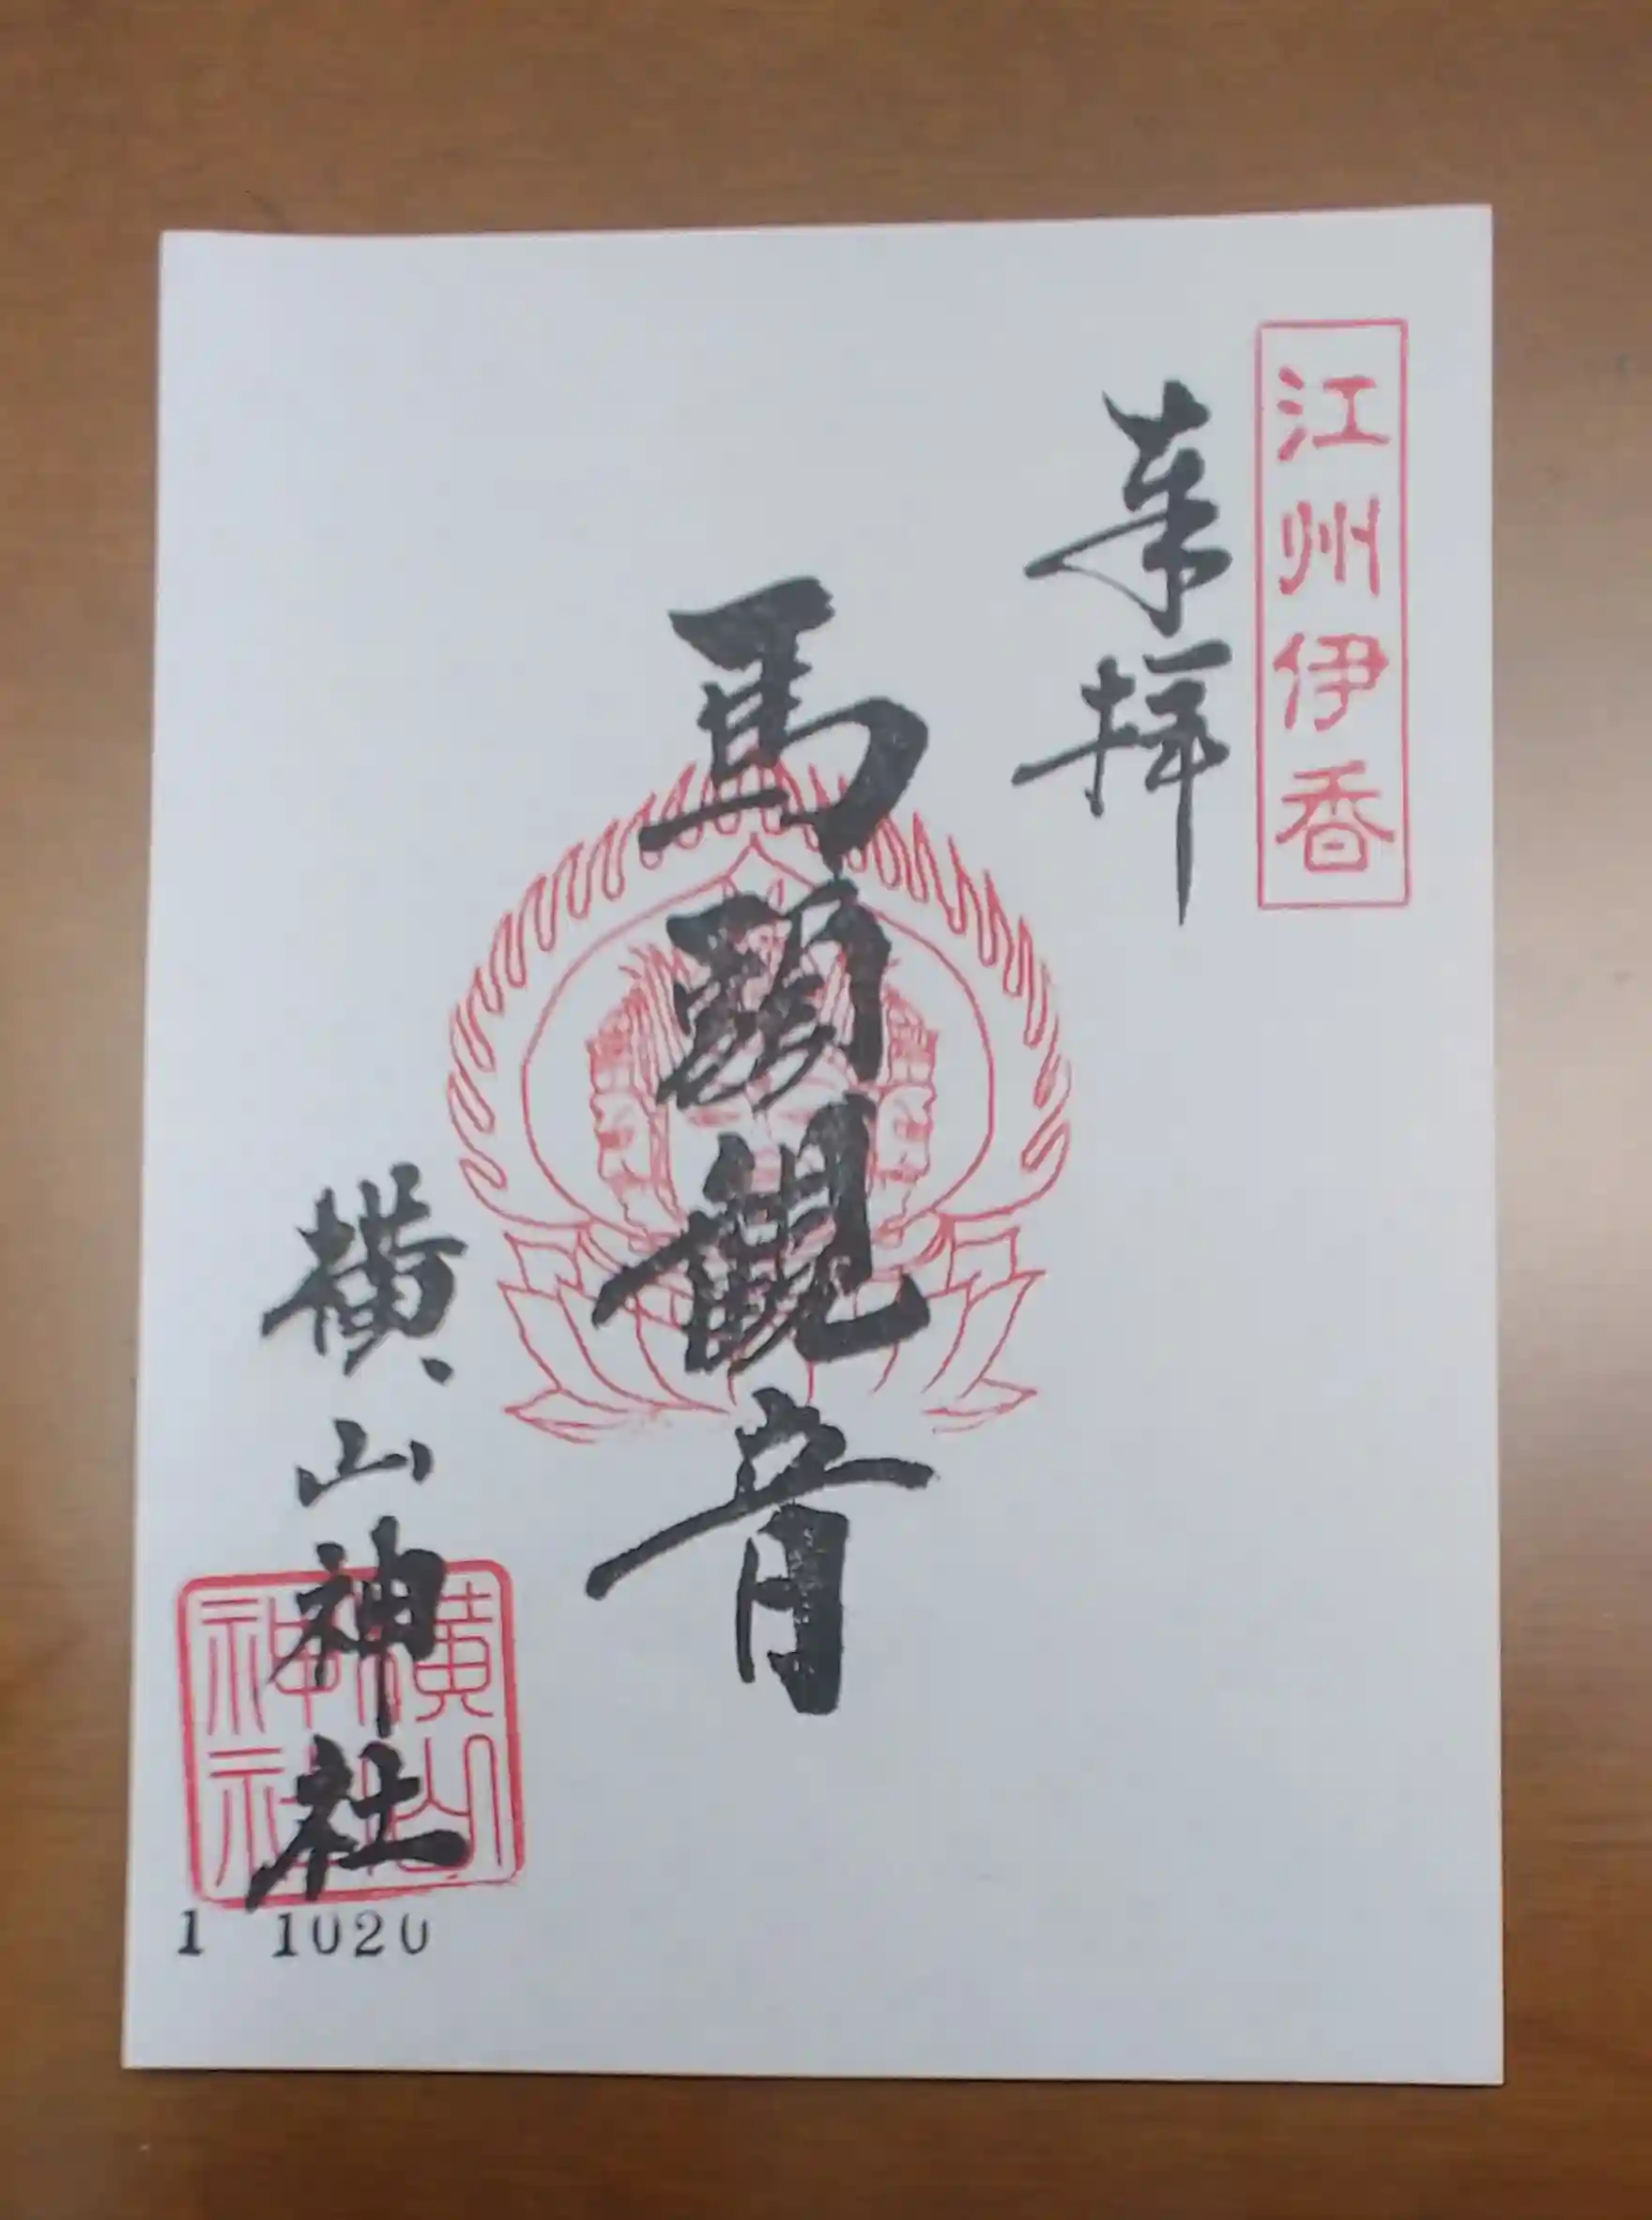 江州伊香
奉拝
馬頭観音
横山神社
横山
神社
1 1020